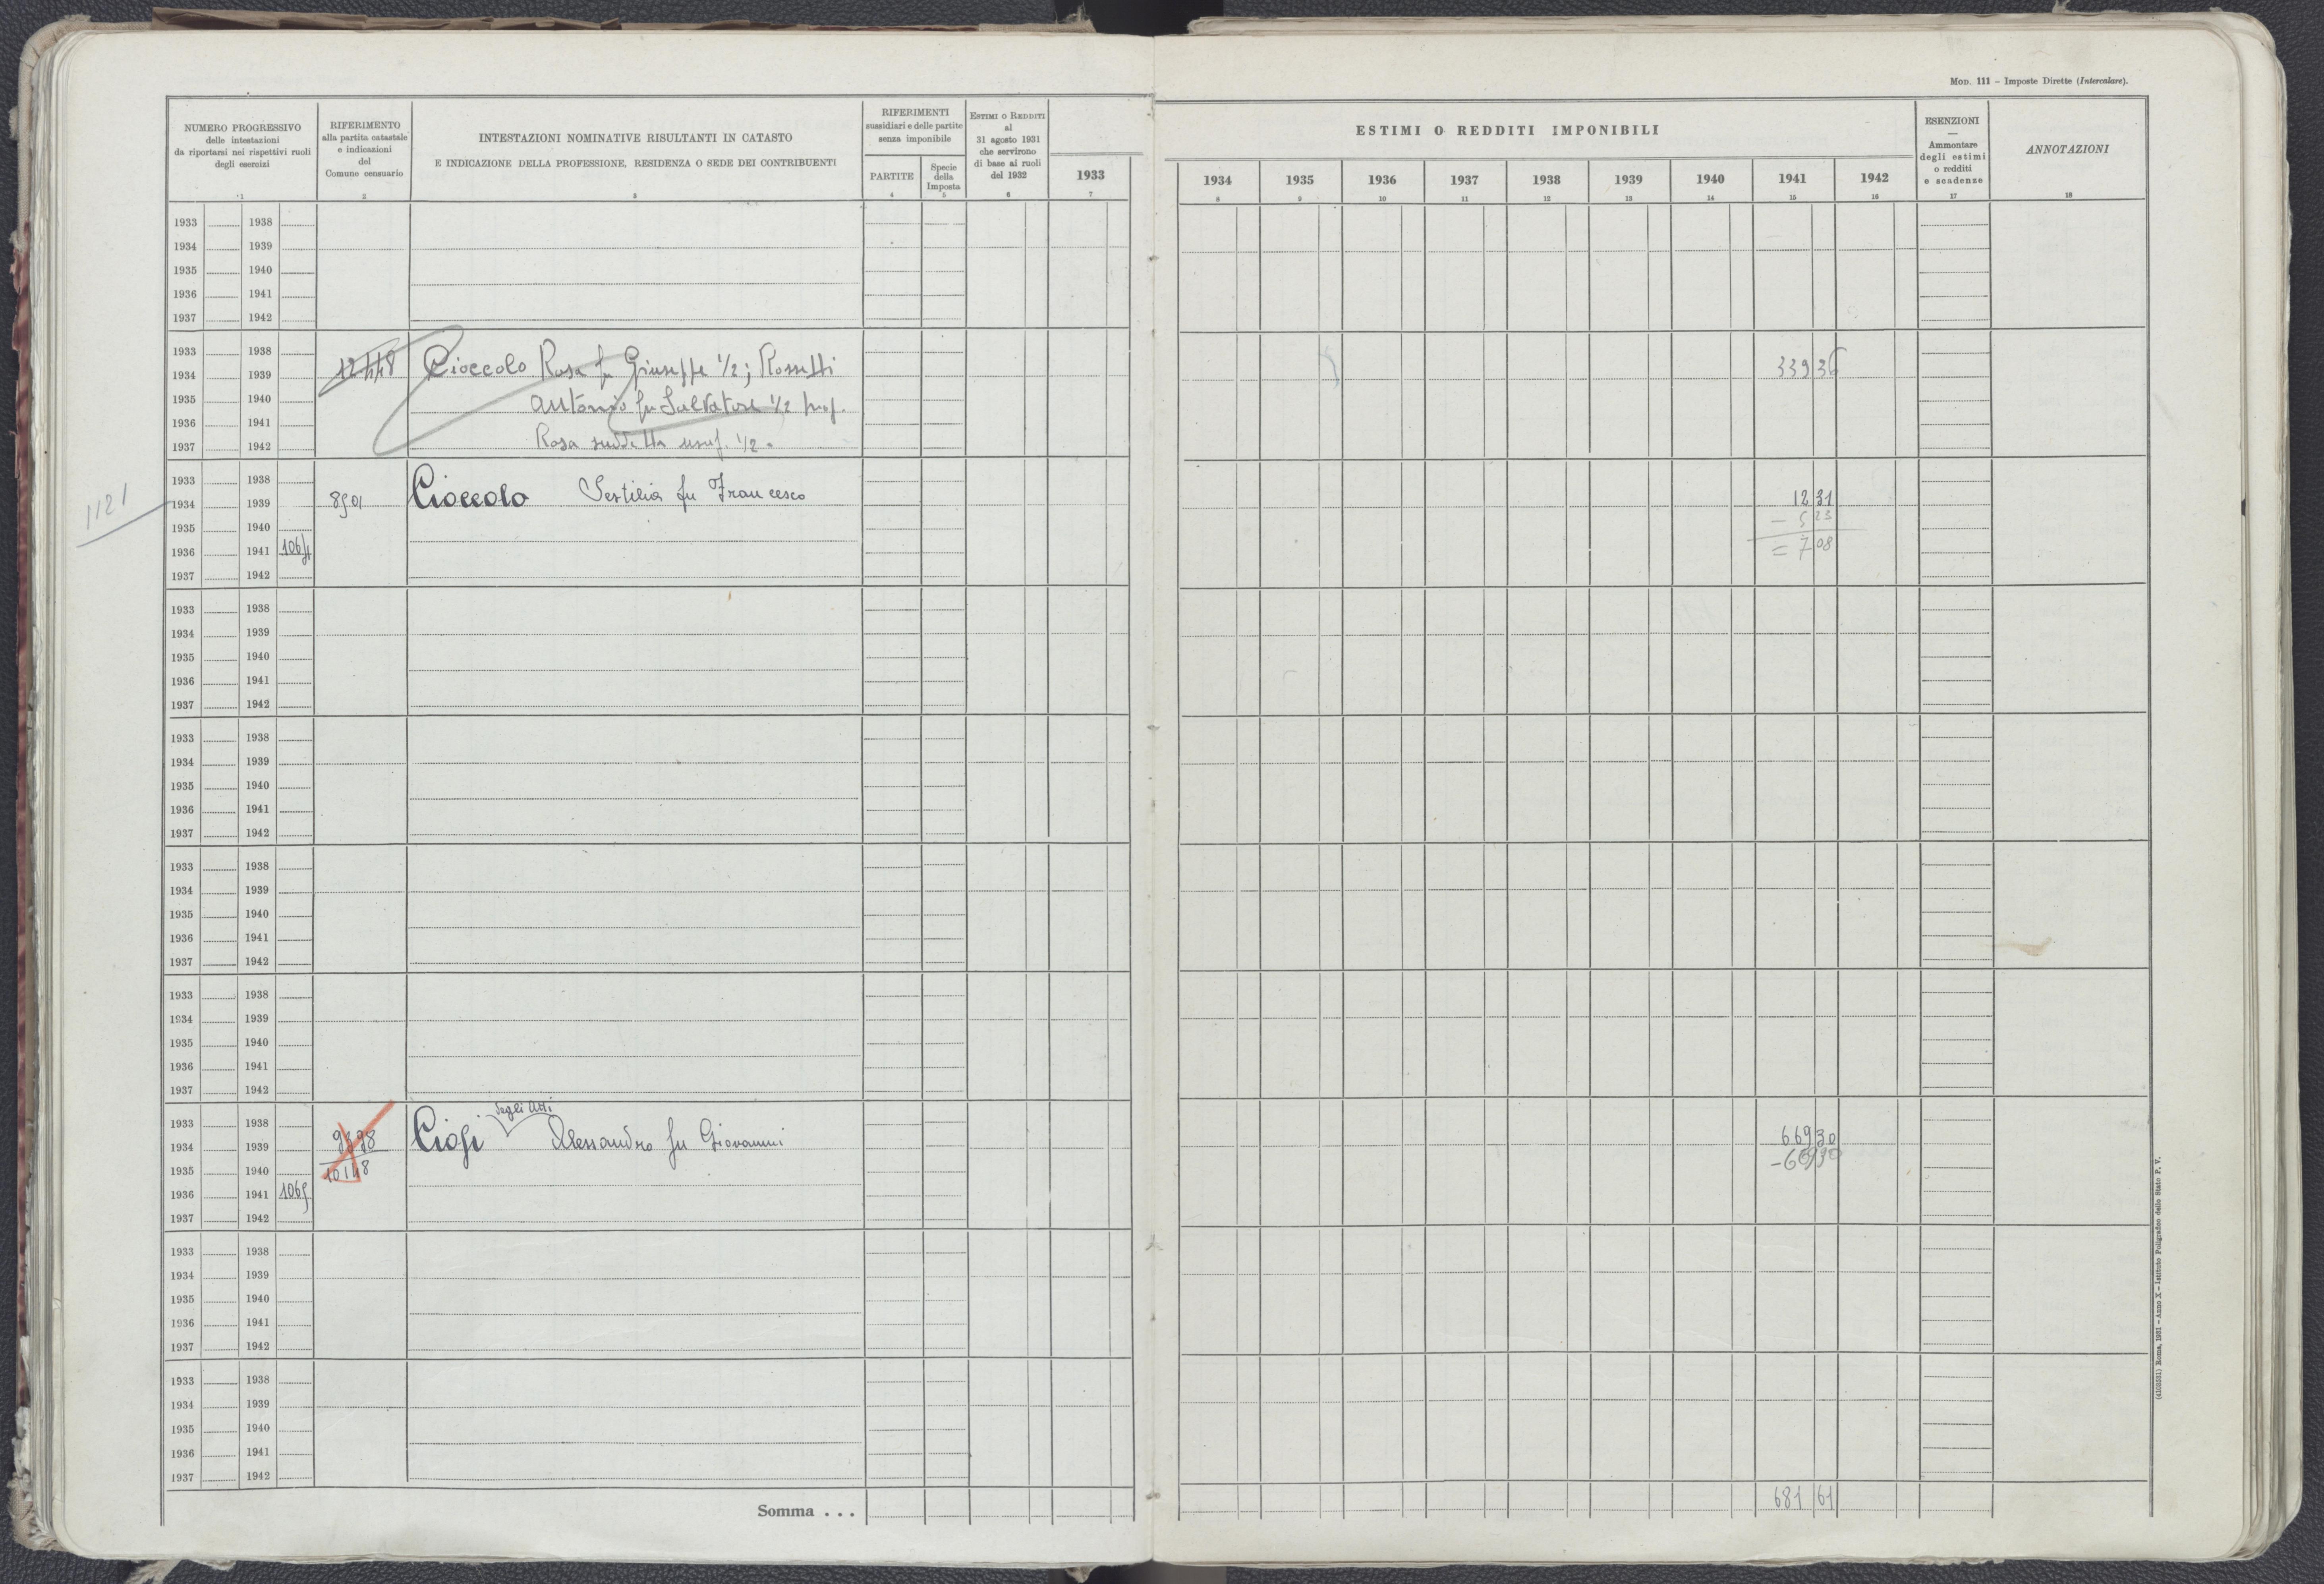 MOD. 111 – Imposte Dirette (Intercalare).
NUMERO PROGRESSIVO
delle intestazioni
da riportarsi nei rispettivi ruoli
degli esercizi
1
RIFERIMENTO
alla partita catastale
e indicazioni
del
Comune censuario
2
INTESTAZIONI NOMINATIVE RISULTANTI IN CATASTO
E INDICAZIONE DELLA PROFESSIONE, RESIDENZA O SEDE DEI CONTRIBUENTI
3
RIFERIMENTI
sussidiari e delle partite
senza imponibile
PARTITE
4
Specie
della
Imposta
5
ESTIMI O REDDITI
al
31 agosto 1931
che servirono
di base ai ruoli
del 1932
6
1933
7
ESTIMI O REDDITI IMPONIBILI
1934 1935 1936 1937 1938 1939 1940 1941 1942
8 9 10 11 12 13 14 15 16
ESENZIONI
—
Ammontare
degli estimi
o redditi
e scadenze
17
ANNOTAZIONI
18
1933 1938
1934 1939
1935 1940
1936 1941
1937 1942
1933 1938
1934 1939 12448 Cioccolo Rosa fu Giuseppe 1/2; Rossetti 339 36
1935 1940 Antonio fu Salvatore 1/2 prop.
1936 1941
1937 1942 Rosa suddetta usuf. 1/2.
1933 1938
1121
1934 1939 8501 Cioccolo Sestilia fu Francesco 12 31
1935 1940 – 5 23
1936 1941 1064 = 7 08
1937 1942
1933 1938
1934 1939
1935 1940
1936 1941
1937 1942
1933 1938
1934 1939
1935 1940
1936 1941
1937 1942
1933 1938
1934 1939
1935 1940
1936 1941
1937 1942
1933 1938
1934 1939
1935 1940
1936 1941
1937 1942
degli Atti
1933 1938
1934 1939 9398 Ciofi Alessandro fu Giovanni 669 30
1935 1940 10148 – 669 30
1936 1941 1065
1937 1942
1933 1938
1934 1939
1935 1940
1936 1941
1937 1942
1933 1938
1934 1939
1935 1940
1936 1941
1937 1942
Somma . . . 681 61
(4100331) Roma, 1931 – Anno X – Istituto Poligrafico dello Stato P. V.